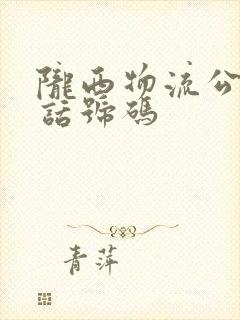 隴西物流公
話號碼
青萍